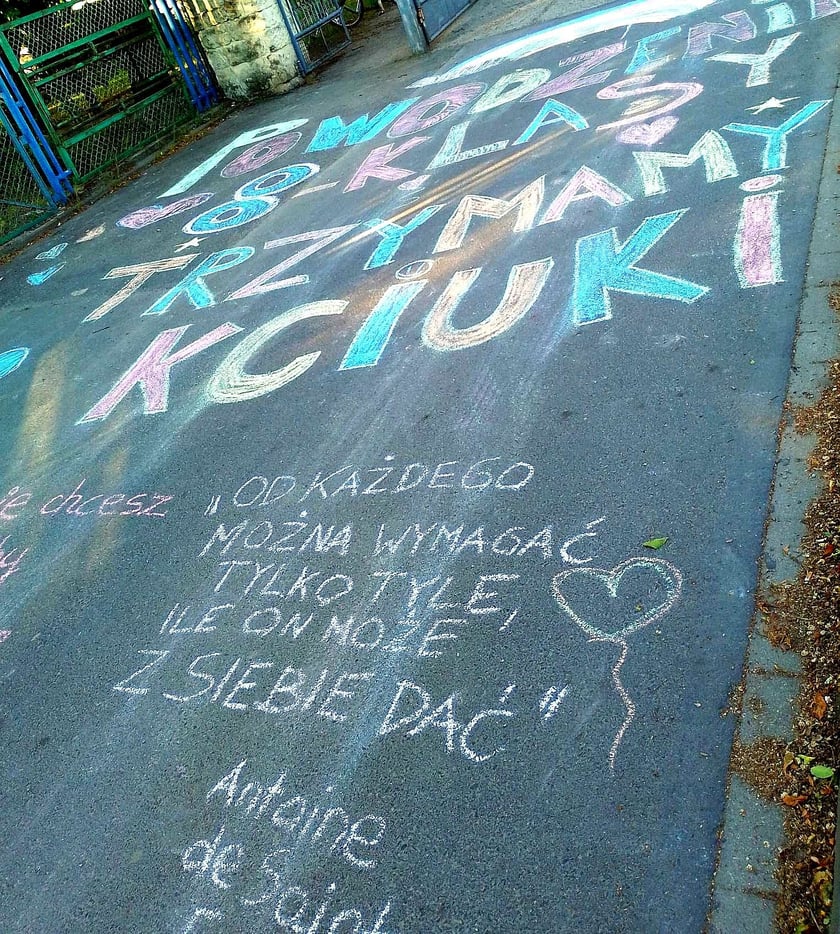 POWODZENIA
8-KLASY
TRZYMAMY
KCiUKi
chcesz
„OD KAŻDEGO
MOŻNA WYMAGAĆ
TYLKO TYLE,
ILE ON MOŻE
Z SIEBIE DAĆ”
Antoine
de Saint